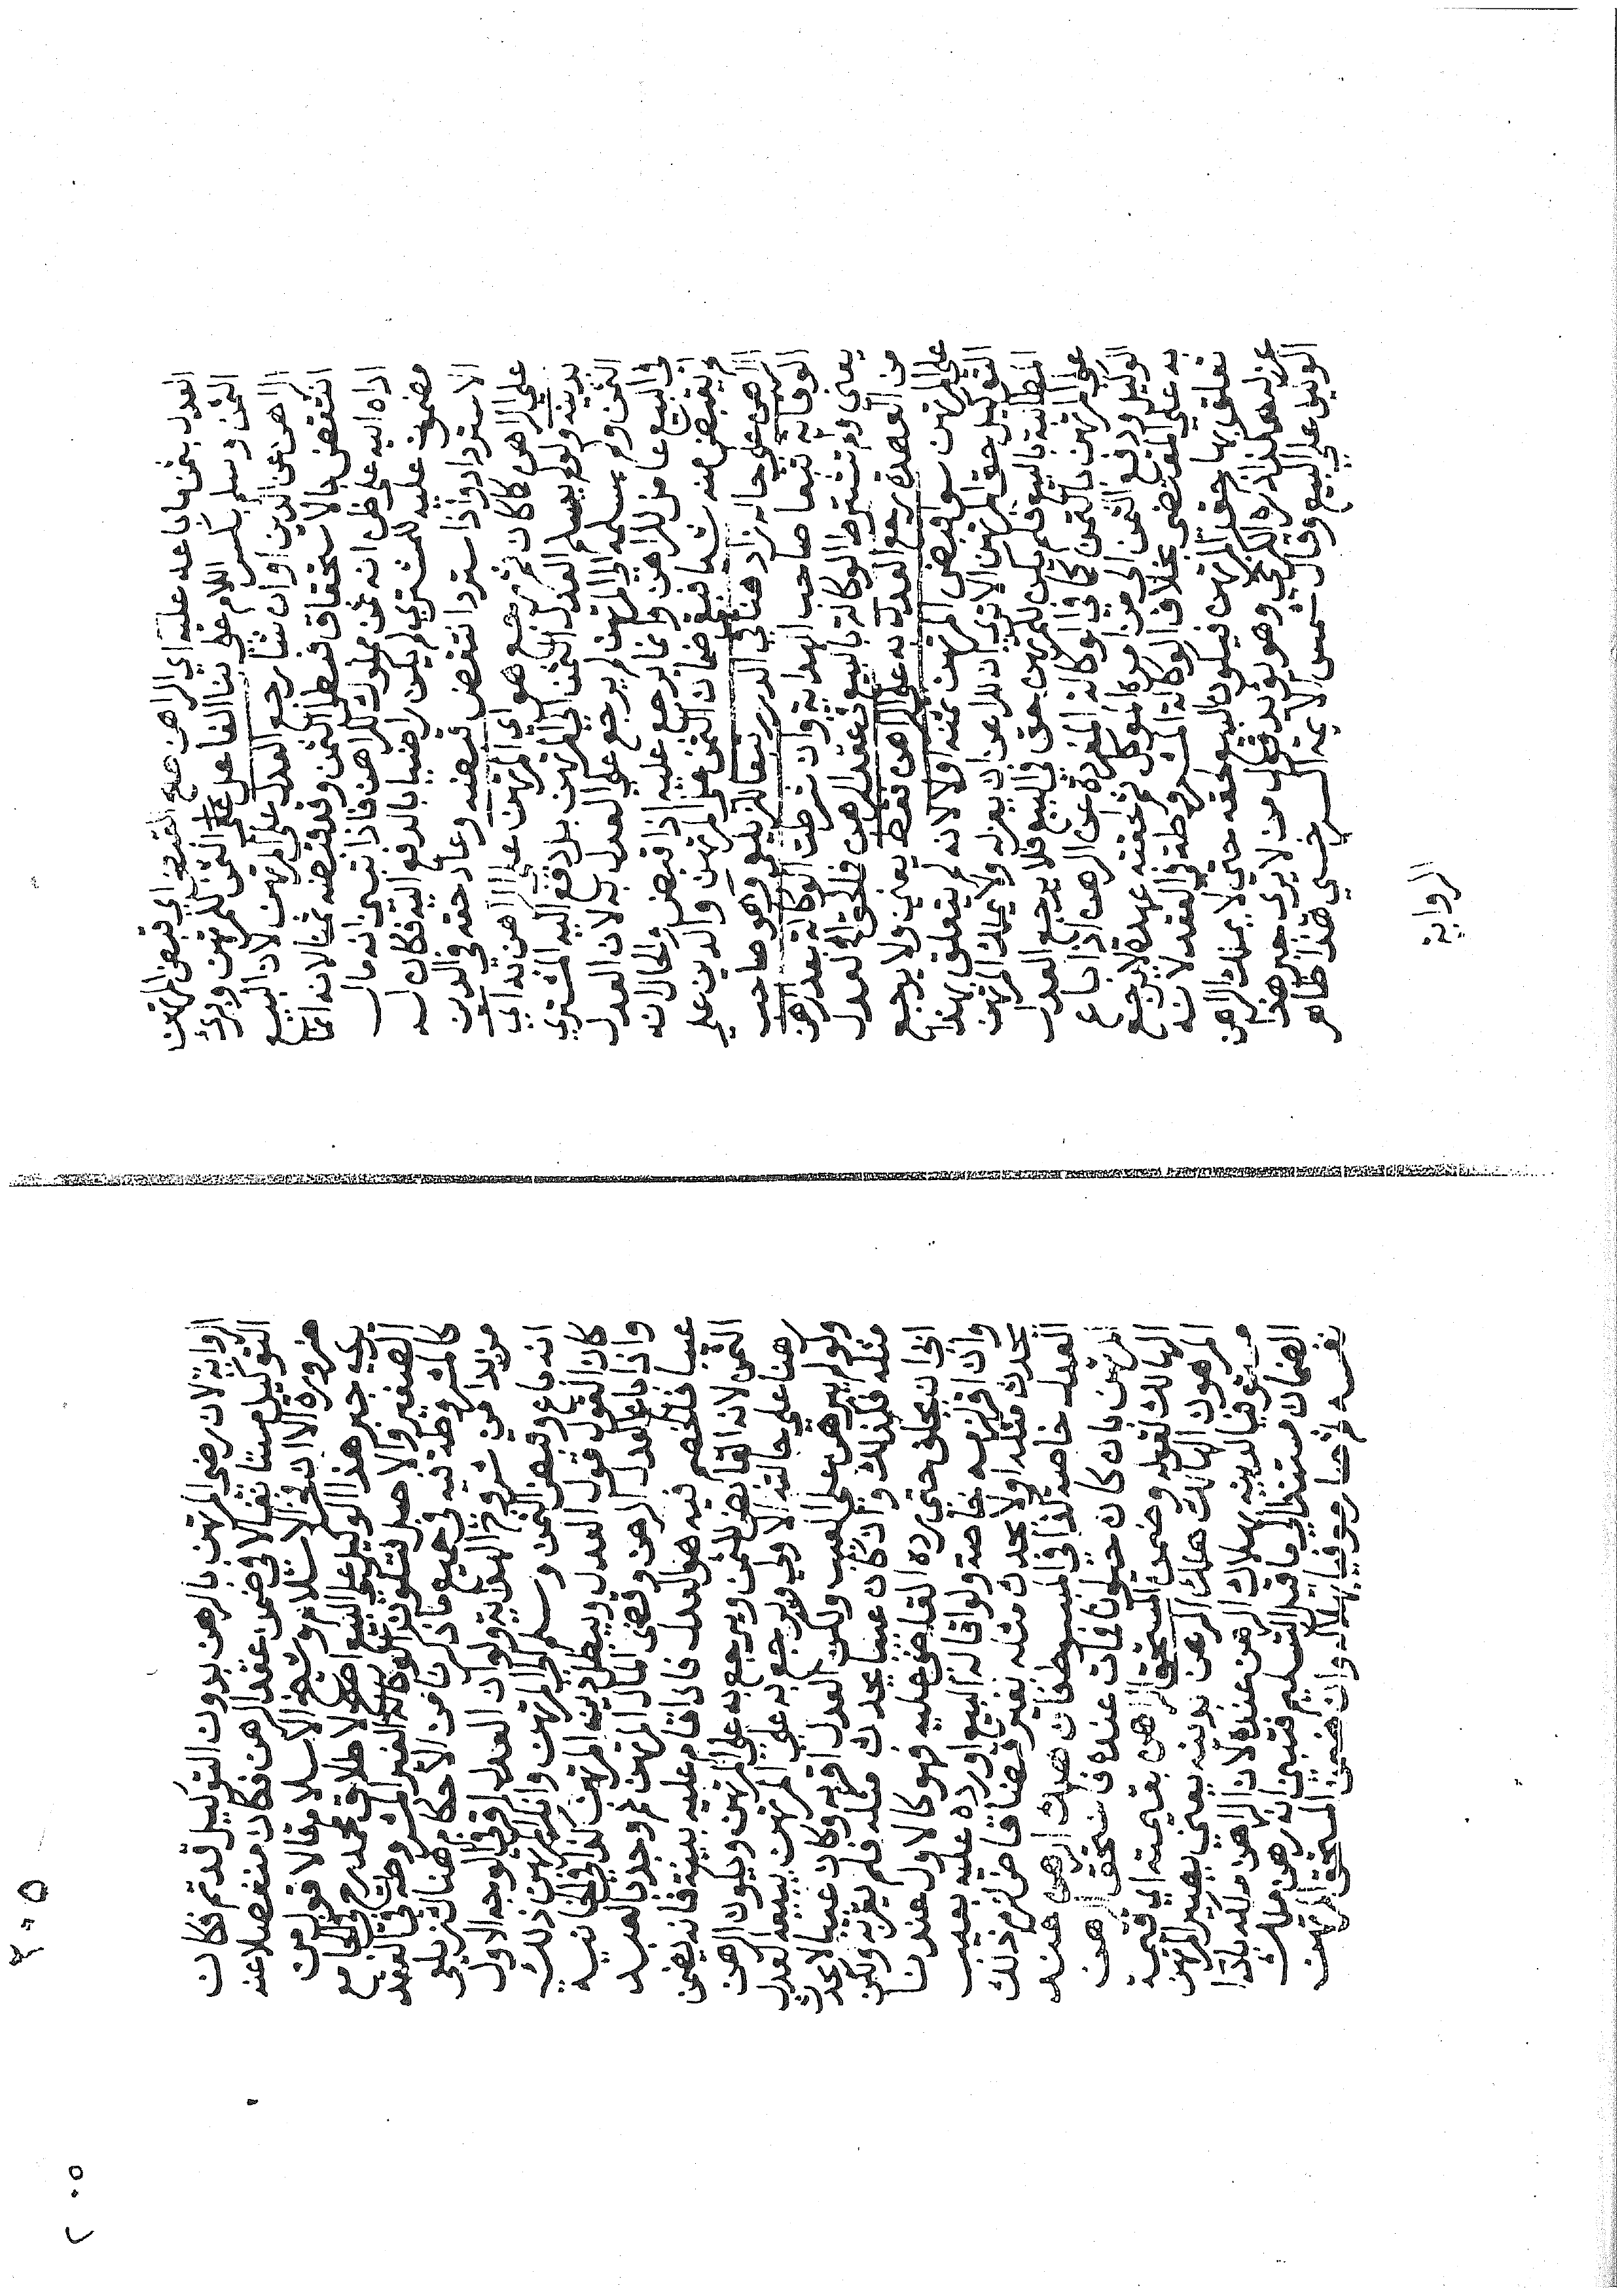 العدل بثمن ما باعه عليه اي الراهن صح القبض اي قبض المرتهن
الثمن وسلم بكسر اللام على بناء الفاعل الثمن للمرتهن وبرئ
الراهن عن الدين او ان شاء رجع العدل على المرتهن لان البيع
انتقض بالاستحقاق فبطل الثمن وقد قبضه ثمنا لانه انما
اداه اليه على ظن انه ثمن مملوك للراهن فاذا تبين انه مال
مضمون عليه للمشتري لم يكن راضيا بالدفع اليه فكان له
الاسترداد واذا استرد انتقض قبضه وعاد حقه في الدين
على الراهن كما كان ثم رجع هو اي المرتهن على الراهن به اي
بدينه ولو لم يسلم العدل الثمن الى المرتهن بل دفع اليه المشتري
الثمن ولم يسلمه الى المرتهن لم يرجع على العدل به لان العدل
في البيع عامل للراهن وانما يرجع عليه اذا قبض والحال انه
لم يقبض منه شيئا فبقي ضمان الثمن على المرتهن والدين على
الراهن على حاله زاد هنا في الدرر تبعا للزيلعي وهو صاحب
الوقاية تبعا صاحب الهداية وان شرطت الوكالة بعد رهن
يعني ولم تشترط الوكالة بالبيع في عقد الرهن فلحق العدل
من العهدة رجع العدل به على الراهن فقط يعني ولا يرجع
على المرتهن سواء قبض المرتهن ثمنه اولا لانه لم يتعلق بهذا
التوكيل حق المرتهن الا ترى ان للراهن ان يعزله ولا يملك المرتهن
مطالبته بالبيع فلم يكن للمرتهن حق في البيع فلا يرجع العدل
على المرتهن بالثمن كما في الوكالة المفردة عن الرهن اذا باع
الوكيل ودفع الثمن الى من امره الموكل ثم لحقته عهدة لا يرجع
به على المقتضي بخلاف الوكالة المشروطة في العقد لانه
تعلق بها حق المرتهن فيكون البيع لحقه حتى لا يملك الراهن
عزله هكذا ذكره الكرخي وهو يؤيد قول من لا يرى جبر هذا
الوكيل على البيع وقال شمس الايمة السرخسي هذا ظاهر
الرواية
الرواية لان رضى المرتهن بالرهن بدون التوكيل قد تم فكان
التوكيل مستانفا لا في ضمن عقد الرهن فكان منفصلا عنه
ضرورة الا ان فخر الاسلام وشيخ الاسلام قالا قول من
يرى جبر هذا الوكيل على البيع اصح لاطلاق محمد رح في الجامع
الصغير والاصل فتكون الوكالة الغير المشروطة في العقد
كالمشروطة فيه في جميع ما ذكرنا من الاحكام هنا للزيلعي
مزيدا من شروح الهداية ولو ان العدل اقر في الوجه الاول
انه باع وقبض الثمن وسلم الى المرتهن وانكر المرتهن ذلك
كان القول قول العدل ويبطل دين المرتهن كذا في الخانية
واذا باع العدل الرهن وقضى المال المرتهن ثم وجد بالعبد
عيبا فالخصم فيه هو العدل فاذا قام عليه بينة فانه يضمن
الثمن لانه القابض للثمن ويرجع به على المرتهن ويكون الرهن
رهنا على حالته الاولى ويرجع به على المرتهن ببيعه العدل
ولو لم يبرهن على العيب ولكن العدل اقر به وكان عيبا لا يحدث
مثله فكذلك وان كان عيبا يحدث مثله فلم يقر به ولكن
ابى ان يحلف حتى رده القاضي عليه فهو كالاول عندنا
وان اقر لزمه خاصة ولو اقاله البيع او رده عليه بعيب
يحدث مثله او لا يحدث مثله بغير قضاء قاض لزم ذلك
العدل خاصة كذا في المبسوط فان هلك الرهن عند
المرتهن بان كان حيوانا فمات عنده فاستحق الرهن
الهالك لقوله وضمن المستحق الراهن بقيمته اي قيمة
المرهون الهالك هلك الرهن بدينه يعني يصير المرتهن
مستوفيا لدينه بهلاك الرهن عنده لان الراهن ملكه باداء
الضمان مستندا الى ما قبل التسليم فتبين انه رهن ملك
نفسه ثم صار موفيا بهلاكه وان ضمن المستحق المرتهن
٢٠٥
٢٠٥